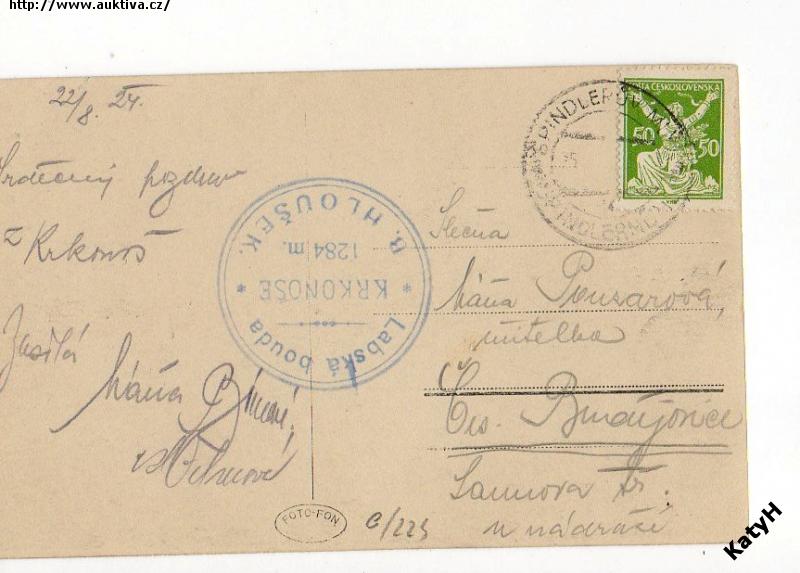 http://www.auktiva.cz/
22/8. 24.
Srdečný pozdrav
z Krkonoš
Zasílá
Máňa
Labská bouda
* KRKONOŠE *
1284 m.
B. HLOUŠEK.
ŠPINDLERŮV MLÝN
SPINDLERMÜHLE
POŠTA ČESKOSLOVENSKÁ
50 50
Slečna
Máňa Pouzarová,
učitelka
Čes. Budějovice
Lannova tř.
u nádraží
FOTO-FON
C/223
KatyH